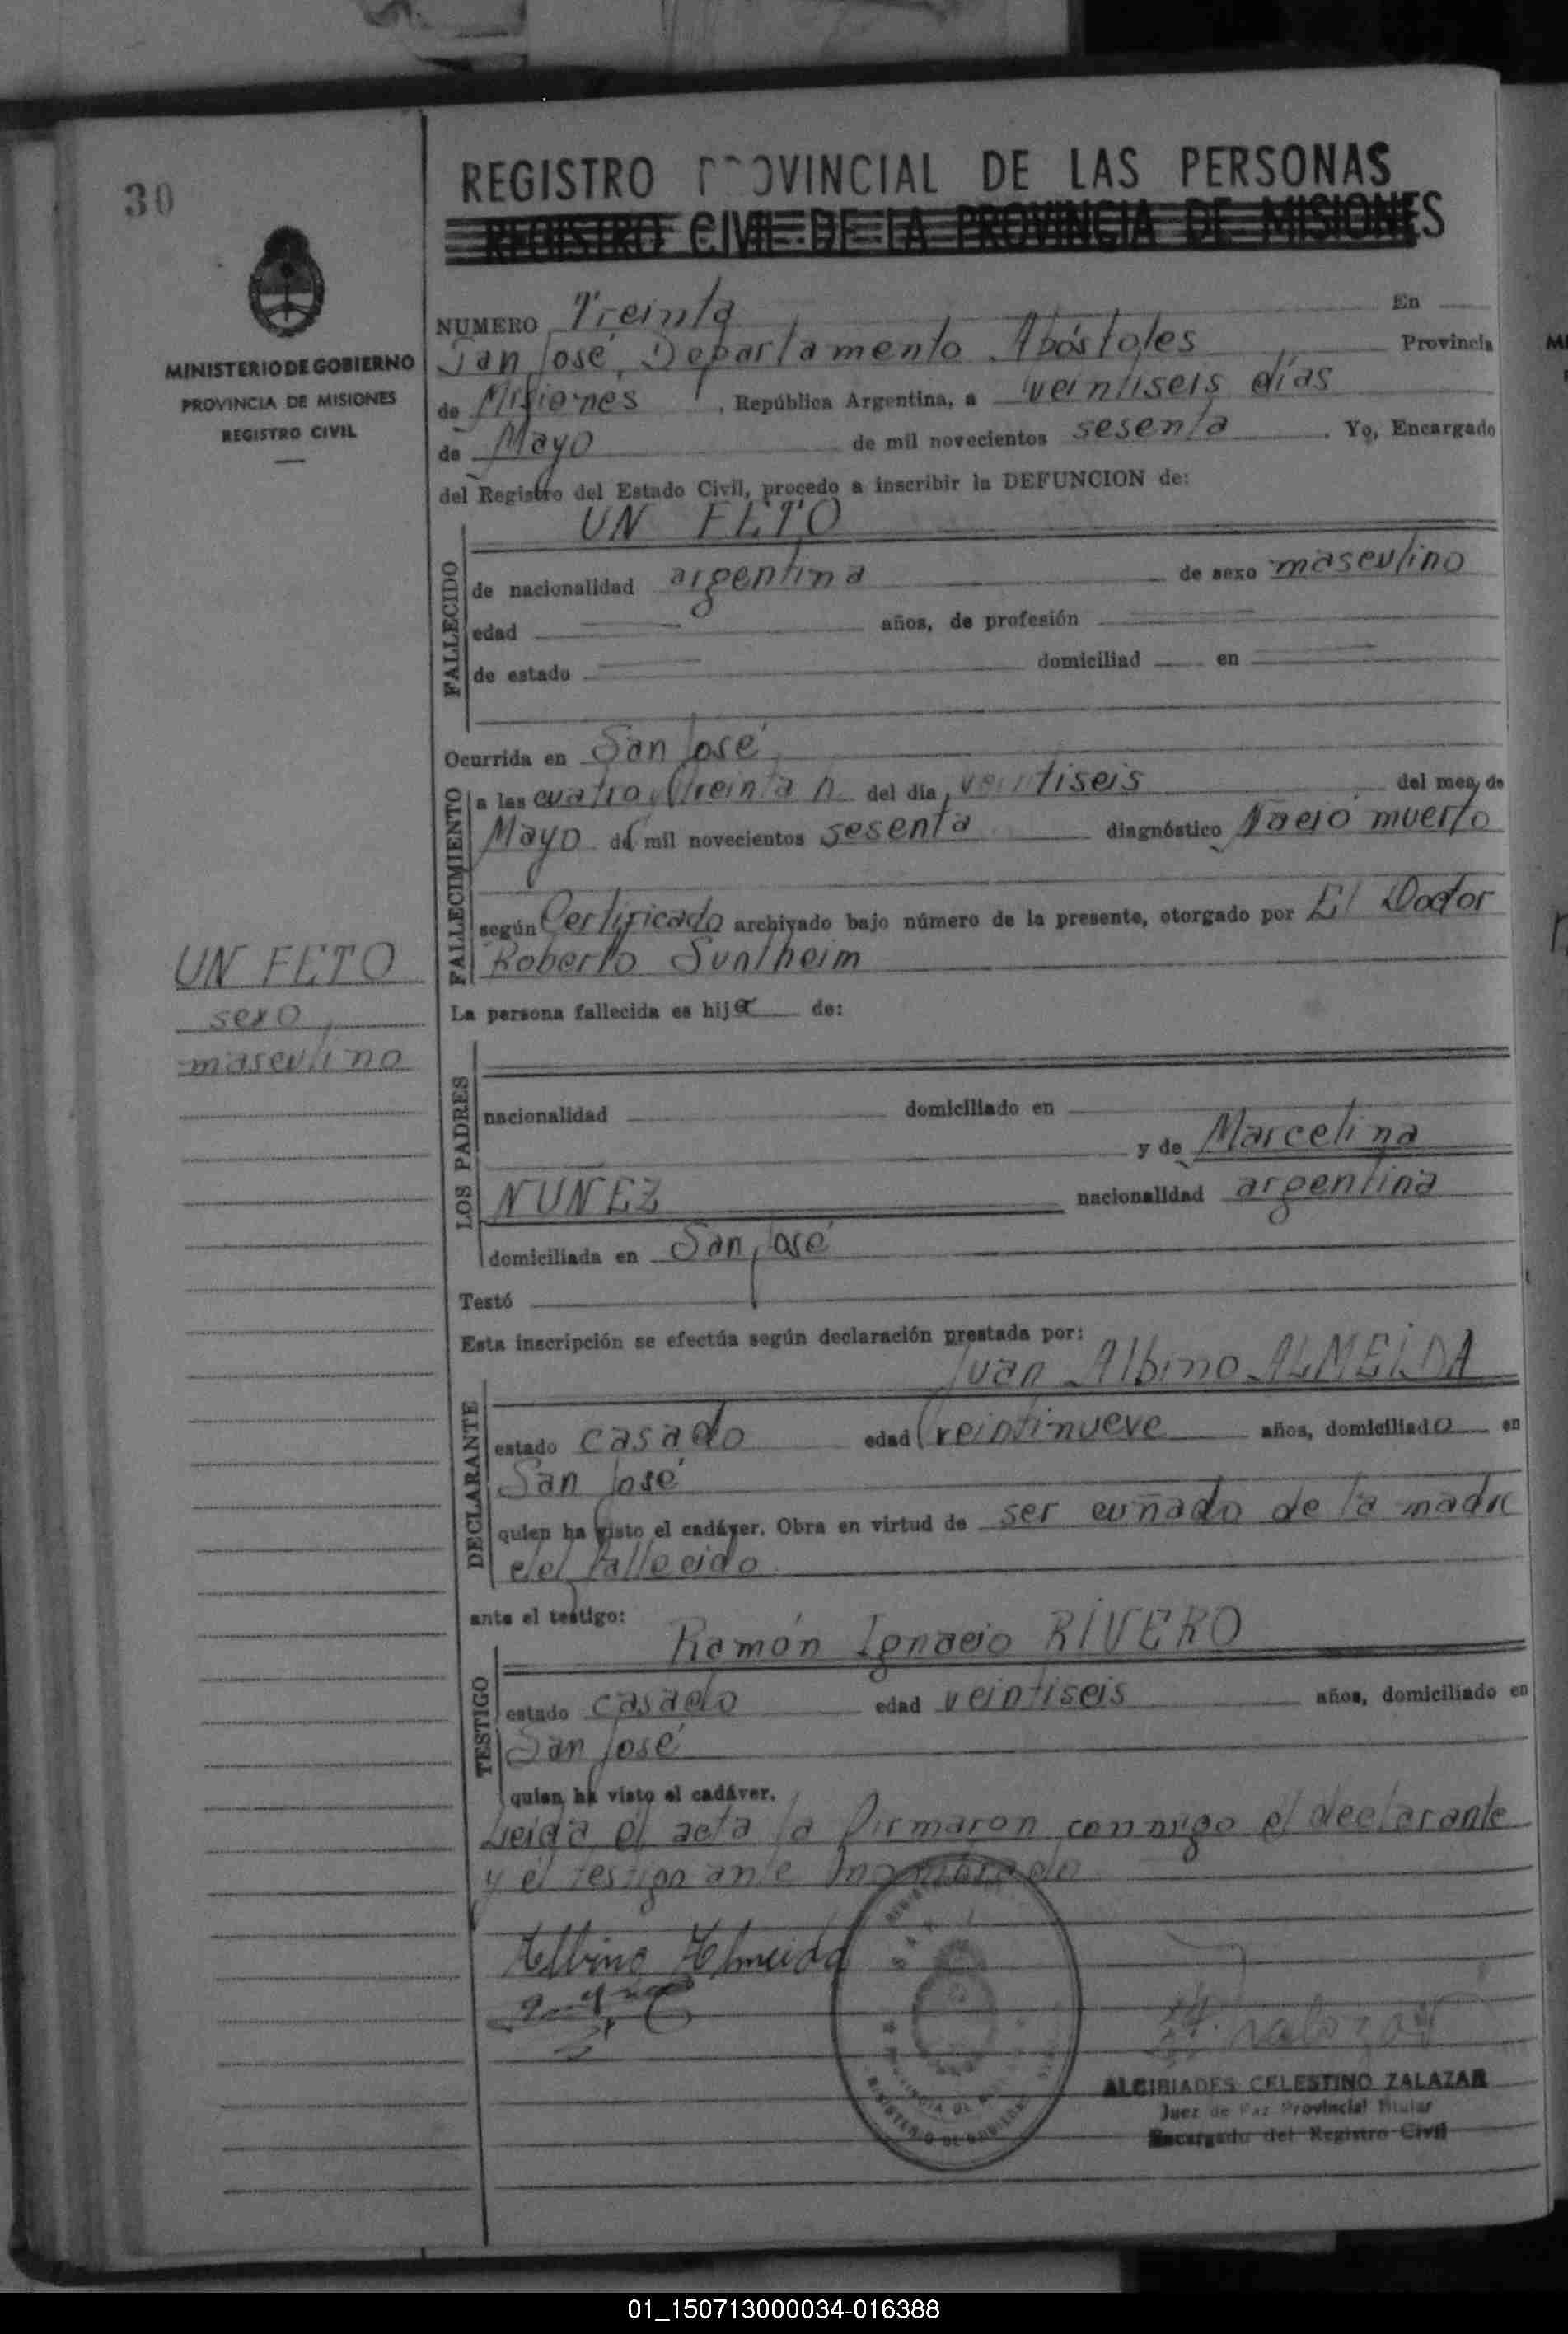 30
REGISTRO PROVINCIAL DE LAS PERSONAS
REGISTRO CIVIL DE LA PROVINCIA DE MISIONES
MINISTERIO DE GOBIERNO
PROVINCIA DE MISIONES
REGISTRO CIVIL
NUMERO Treinta En
San José, Departamento Apóstoles Provincia
de Misiones, República Argentina, a veintiseis días
de Mayo de mil novecientos sesenta. Yo, Encargado
del Registro del Estado Civil, procedo a inscribir la DEFUNCION de:
UN FETO
FALLECIDO
de nacionalidad argentina de sexo masculino
edad años, de profesión
de estado domiciliad en
Ocurrida en San José,
FALLECIMIENTO
a las cuatro y treinta h. del día veintiseis del mes de
Mayo de mil novecientos sesenta diagnóstico Nació muerto
según Certificado archivado bajo número de la presente, otorgado por El Doctor
Roberto Suntheim
UN FETO
sexo
masculino
La persona fallecida es hij de:
LOS PADRES
nacionalidad domiciliado en
y de Marcelina
NUNEZ nacionalidad argentina
domiciliada en San José
Testó
Esta inscripción se efectúa según declaración prestada por:
Juan Albino ALMEIDA
DECLARANTE
estado casado edad treintinueve años, domiciliado en
San José
quien ha visto el cadáver. Obra en virtud de ser cuñado de la madre
del fallecido
ante el testigo:
Ramón Ignacio RIVERO
TESTIGO
estado casado edad veintiseis años, domiciliado en
San José
quien ha visto el cadáver.
Leida el acta la firmaron conmigo el declarante
y el testigo ante
Albino Almeida
ALCIBIADES CELESTINO ZALAZAR
Juez de Paz Provincial Titular
Encargado del Registro Civil
01_150713000034-016388